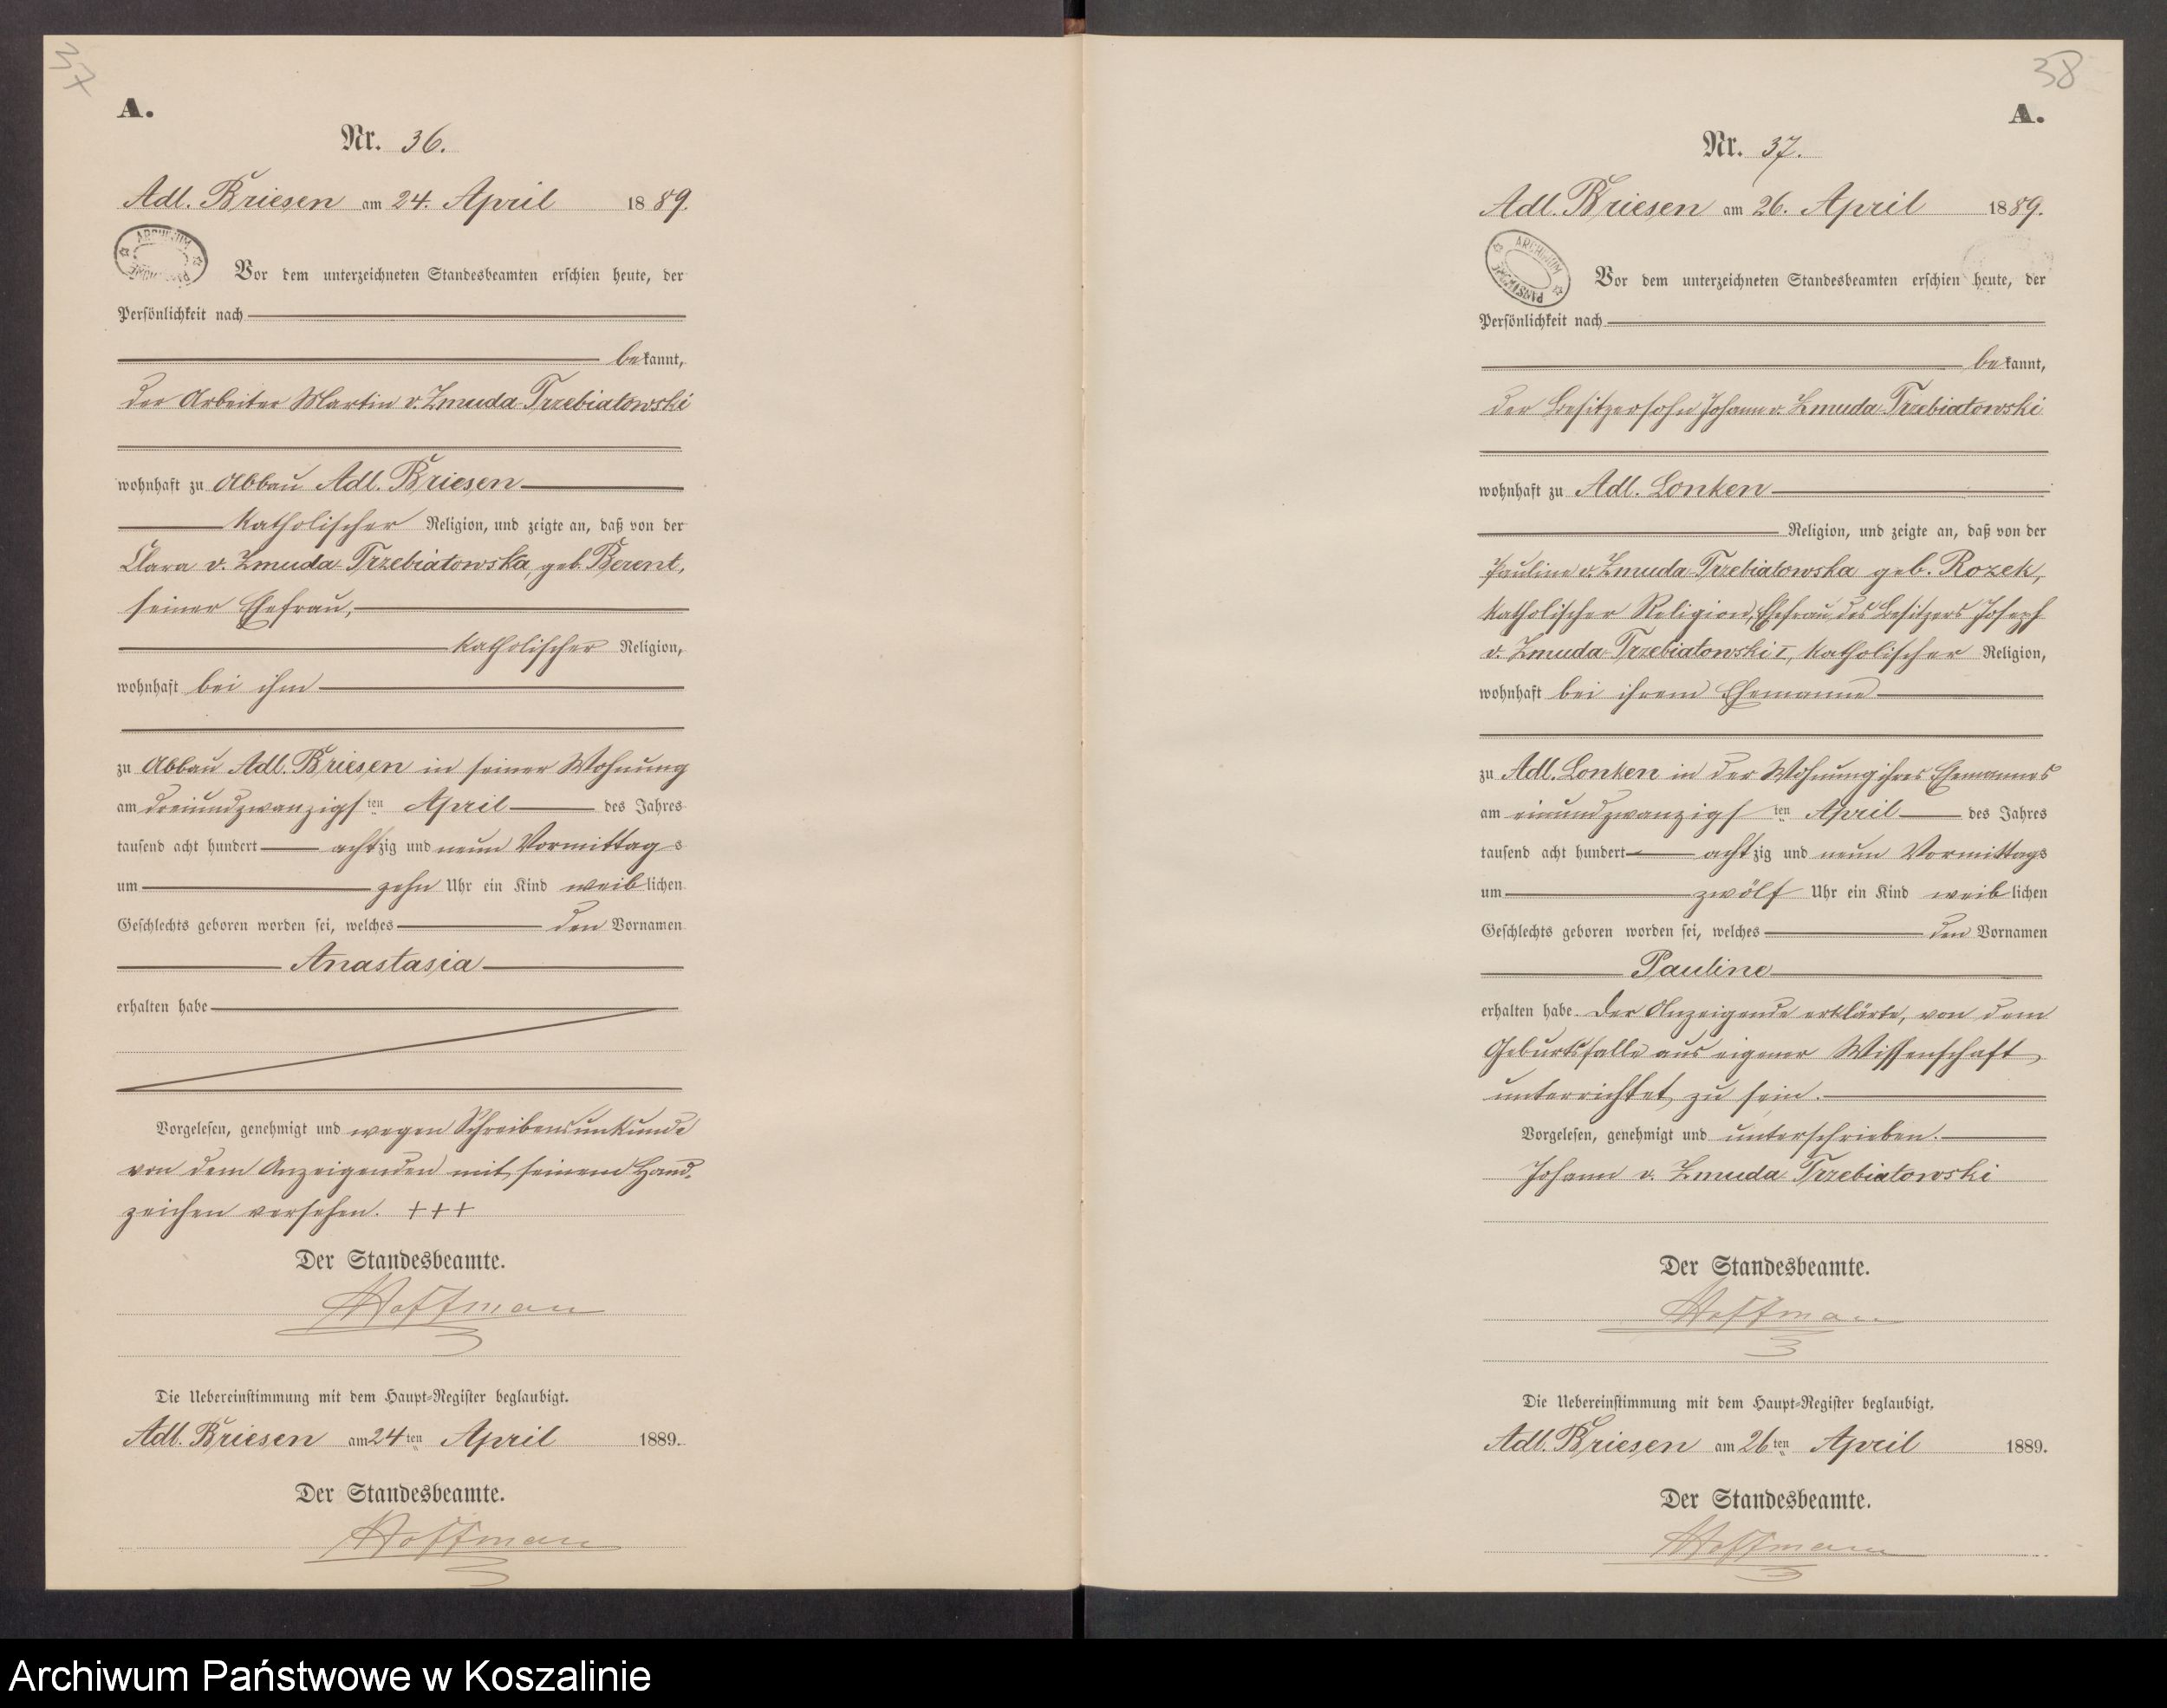 37
A.
Nr. 36.
Adl. Briesen am 24. April 1889.
ARCHIWUM
Vor dem unterzeichneten Standesbeamten erschien heute, der
Persönlichkeit nach
bekannt,
der Arbeiter Martin v. Zmuda-Trzebiatowski
wohnhaft zu Abbau Adl. Briesen
katholischer Religion, und zeigte an, daß von der
Clara v. Zmuda-Trzebiatowska, geb. Berent,
seiner Ehefrau,
katholischer Religion,
wohnhaft bei ihm
zu Abbau Adl. Briesen in seiner Wohnung
am dreiundzwanzigsten April des Jahres
tausend acht hundert achtzig und neun Vormittags
um zehn Uhr ein Kind weiblichen
Geschlechts geboren worden sei, welches den Vornamen
Anastasia
erhalten habe
Vorgelesen, genehmigt und wegen Schreibensunkunde
von dem Anzeigenden mit seinem Hand-
zeichen versehen. +++
Der Standesbeamte.
Hoffman
Die Uebereinstimmung mit dem Haupt-Register beglaubigt.
Adl. Briesen am 24ten April 1889.
Der Standesbeamte.
Hoffman
38
A.
Nr. 37.
Adl. Briesen am 26. April 1889.
ARCHIWUM PAŃSTWOWE
Vor dem unterzeichneten Standesbeamten erschien heute, der
Persönlichkeit nach
bekannt,
der Besitzersohn Johann v. Zmuda-Trzebiatowski
wohnhaft zu Adl. Lonken
Religion, und zeigte an, daß von der
Pauline v. Zmuda-Trzebiatowska geb. Rozek,
katholischer Religion, Ehefrau des Besitzers Joseph
v. Zmuda-Trzebiatowski I, katholischer Religion,
wohnhaft bei ihrem Ehemanne
zu Adl. Lonken in der Wohnung ihres Ehemannes
am einundzwanzigsten April des Jahres
tausend acht hundert achtzig und neun Vormittags
um zwölf Uhr ein Kind weiblichen
Geschlechts geboren worden sei, welches den Vornamen
Pauline
erhalten habe. Der Anzeigende erklärte, von dem
Geburtsfalle aus eigener Wissenschaft
unterrichtet zu sein.
Vorgelesen, genehmigt und unterschrieben.
Johann v. Zmuda-Trzebiatowski
Der Standesbeamte.
Hoffman
Die Uebereinstimmung mit dem Haupt-Register beglaubigt.
Adl. Briesen am 26ten April 1889.
Der Standesbeamte.
Hoffman
Archiwum Państwowe w Koszalinie